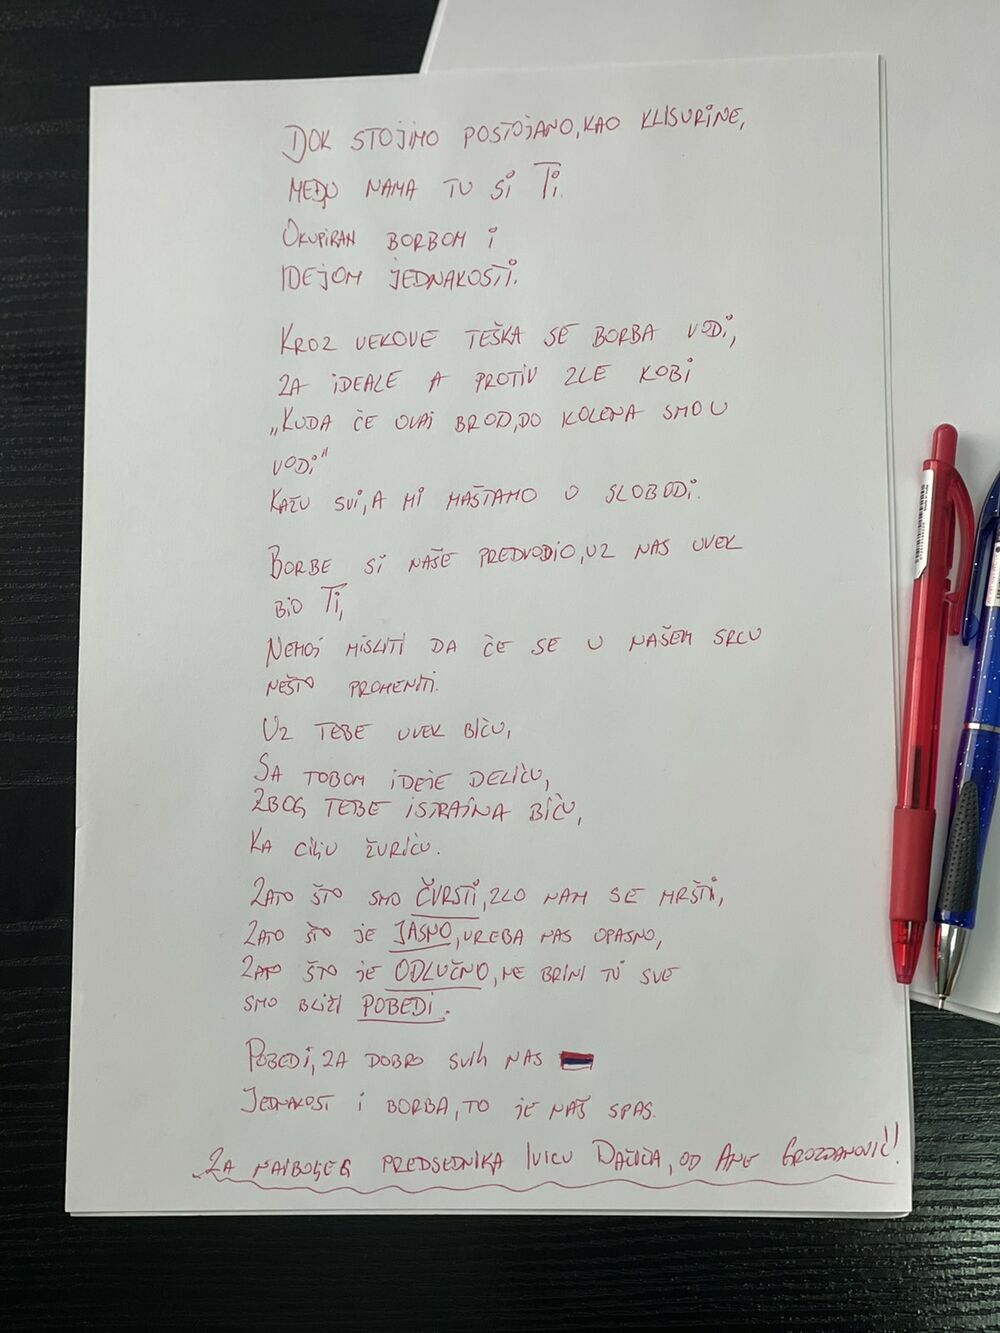 DOK STOJIMO POSTOJANO, KAO KLISURINE,
MEĐU NAMA TU SI TI.
OKUPIRAN BORBOM I
IDEJOM JEDNAKOSTI.
KROZ VEKOVE TEŠKA SE BORBA VODI,
ZA IDEALE A PROTIV ZLE KOBI
„KUDA ČE OVAJ BROD, DO KOLENA SMO U
VODI"
KAŽU SVI, A MI MAŠTAMO O SLOBODI.
BORBE SI NAŠE PREDVODIO, UZ NAS UVEK
BIO TI,
NEMOJ MISLITI DA ĆE SE U NAŠEM SRCU
NEŠTO PROMENITI.
UZ TEBE UVEK BIĆU,
SA TOBOM IDEJE DELIĆU,
ZBOG TEBE ISTRAJNA BIĆU,
KA CILJU ŽURIĆU.
ZATO ŠTO SMO ČVRSTI, ZLO NAM SE MRŠTI,
ZATO ŠTO JE JASNO, VREBA NAS OPASNO,
ZATO ŠTO JE ODLUČNO, NE BRINI TI SVE
SMO BLIŽI POBEDI.
POBEDI, ZA DOBRO SVIH NAS
JEDNAKOST I BORBA, TO JE NAŠ SPAS.
ZA NAJBOLJEG PREDSEDNIKA IVICU DAČIĆA, OD ANE GROZDANOVIĆ!